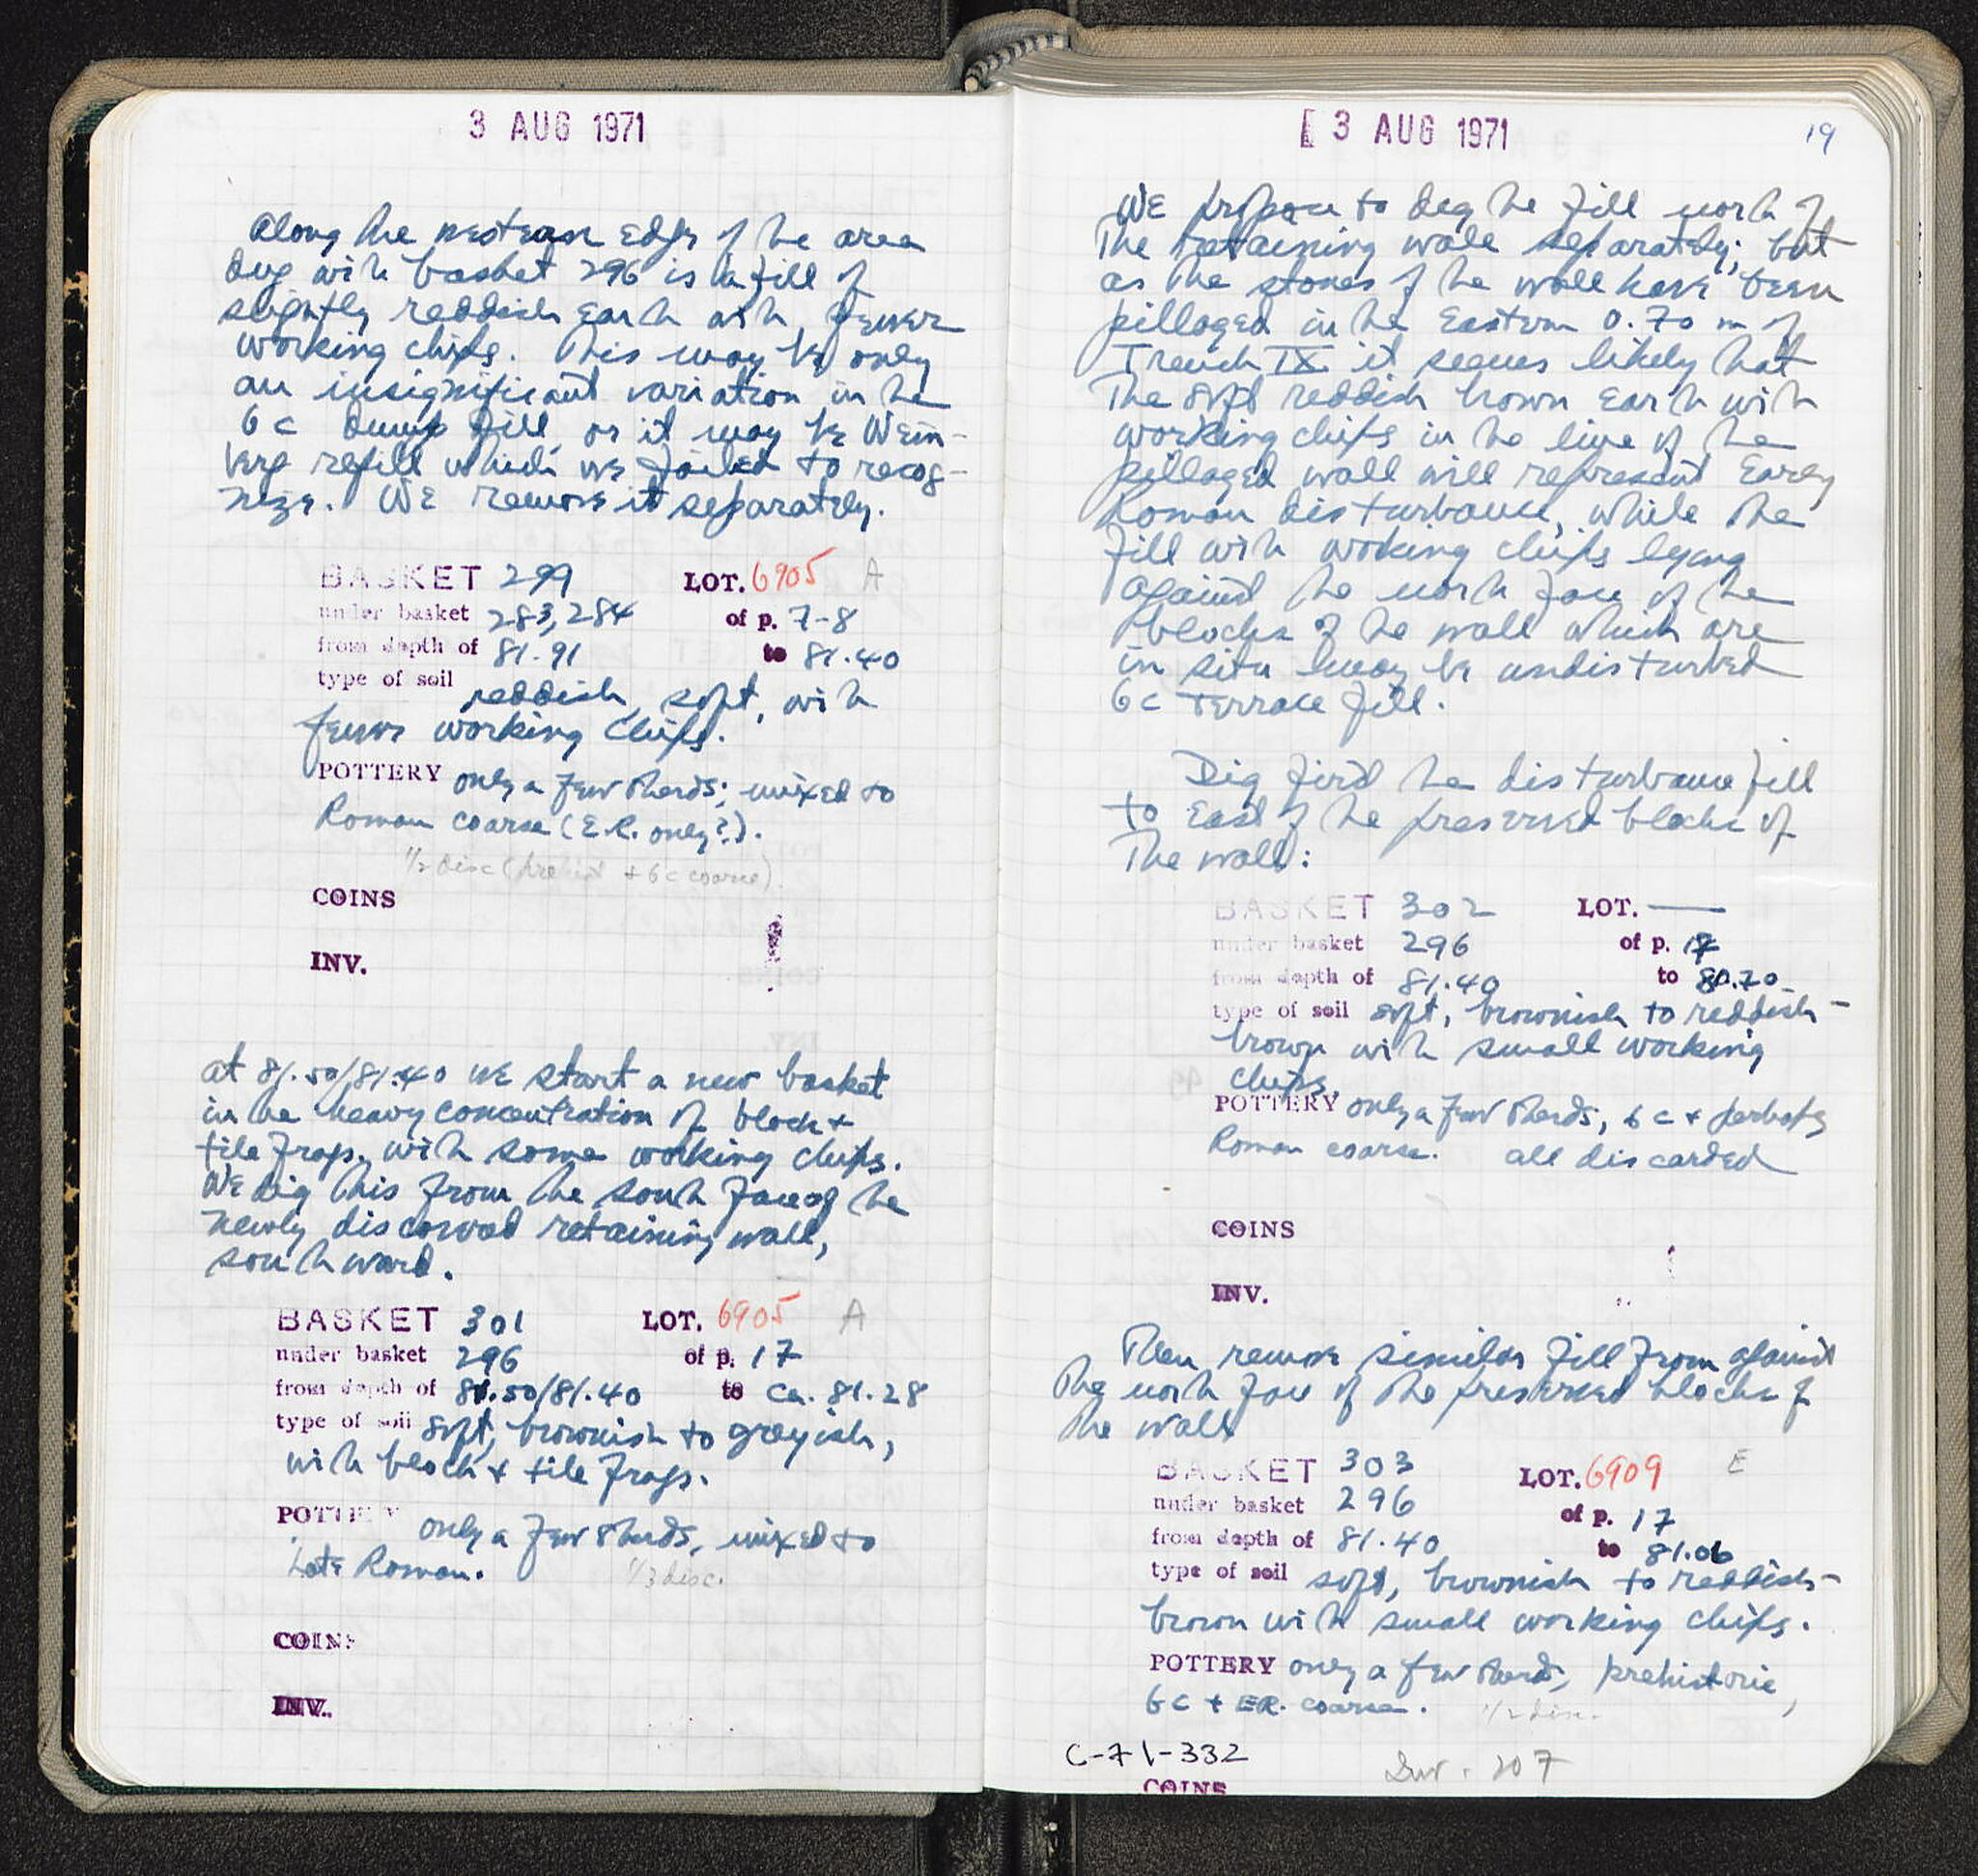 3 AUG 1971
Along the western edge of the area
dug with basket 296 is a fill of
slightly reddish earth with fewer
working chips. This may be only
an insignificant variation in the
6 c dump fill, or it may be Wein-
berg refill which we failed to recog-
nize. We remove it separately.
BASKET 299 LOT. 6905 A
under basket 283, 284 of p. 7-8
from depth of 81.91 to 81.40
type of soil reddish, soft, with
fewer working chips.
POTTERY only a few sherds; mixed to
Roman coarse (E.R. only?).
1/2 disc (prehist + 6c coarse)
COINS
INV.
at 81.50/81.40 we start a new basket
in the heavy concentration of block +
tile frags. with some working chips.
We dig this from the south face of the
newly discovered retaining wall,
southward.
BASKET 301 LOT. 6905 A
under basket 296 of p. 17
from depth of 81.50/81.40 to ca. 81.28
type of soil soft, brownish to greyish,
with block + tile frags.
POTTERY only a few sherds, mixed to
Late Roman. 1/3 disc.
COINS
INV.
3 AUG 1971 19
We propose to dig the fill north of
the retaining wall separately; but
as the stones of the wall have been
pillaged in the Eastern 0.70 m of
Trench IX it seems likely that
the soft reddish brown earth with
working chips in the line of the
pillaged wall will represent Early
Roman disturbance, while the
fill with working chips lying
against the north face of the
blocks of the wall which are
in situ may be undisturbed
6c Terrace fill.
Dig first the disturbance fill
to East of the preserved blocks of
the wall:
BASKET 302 LOT. —
under basket 296 of p. 17
from depth of 81.40 to 80.70
type of soil soft, brownish to reddish-
brown with small working
chips.
POTTERY only a few sherds, 6 c + perhaps
Roman coarse. all discarded
COINS
INV.
Then remove similar fill from against
the north face of the preserved blocks of
the wall
BASKET 303 LOT. 6909 E
under basket 296 of p. 17
from depth of 81.40 to 81.06
type of soil soft, brownish to reddish-
brown with small working chips.
POTTERY only a few sherds, prehistoric,
6c + ER. coarse. 1/2 disc.
C-71-332 Inv. 207
COINS